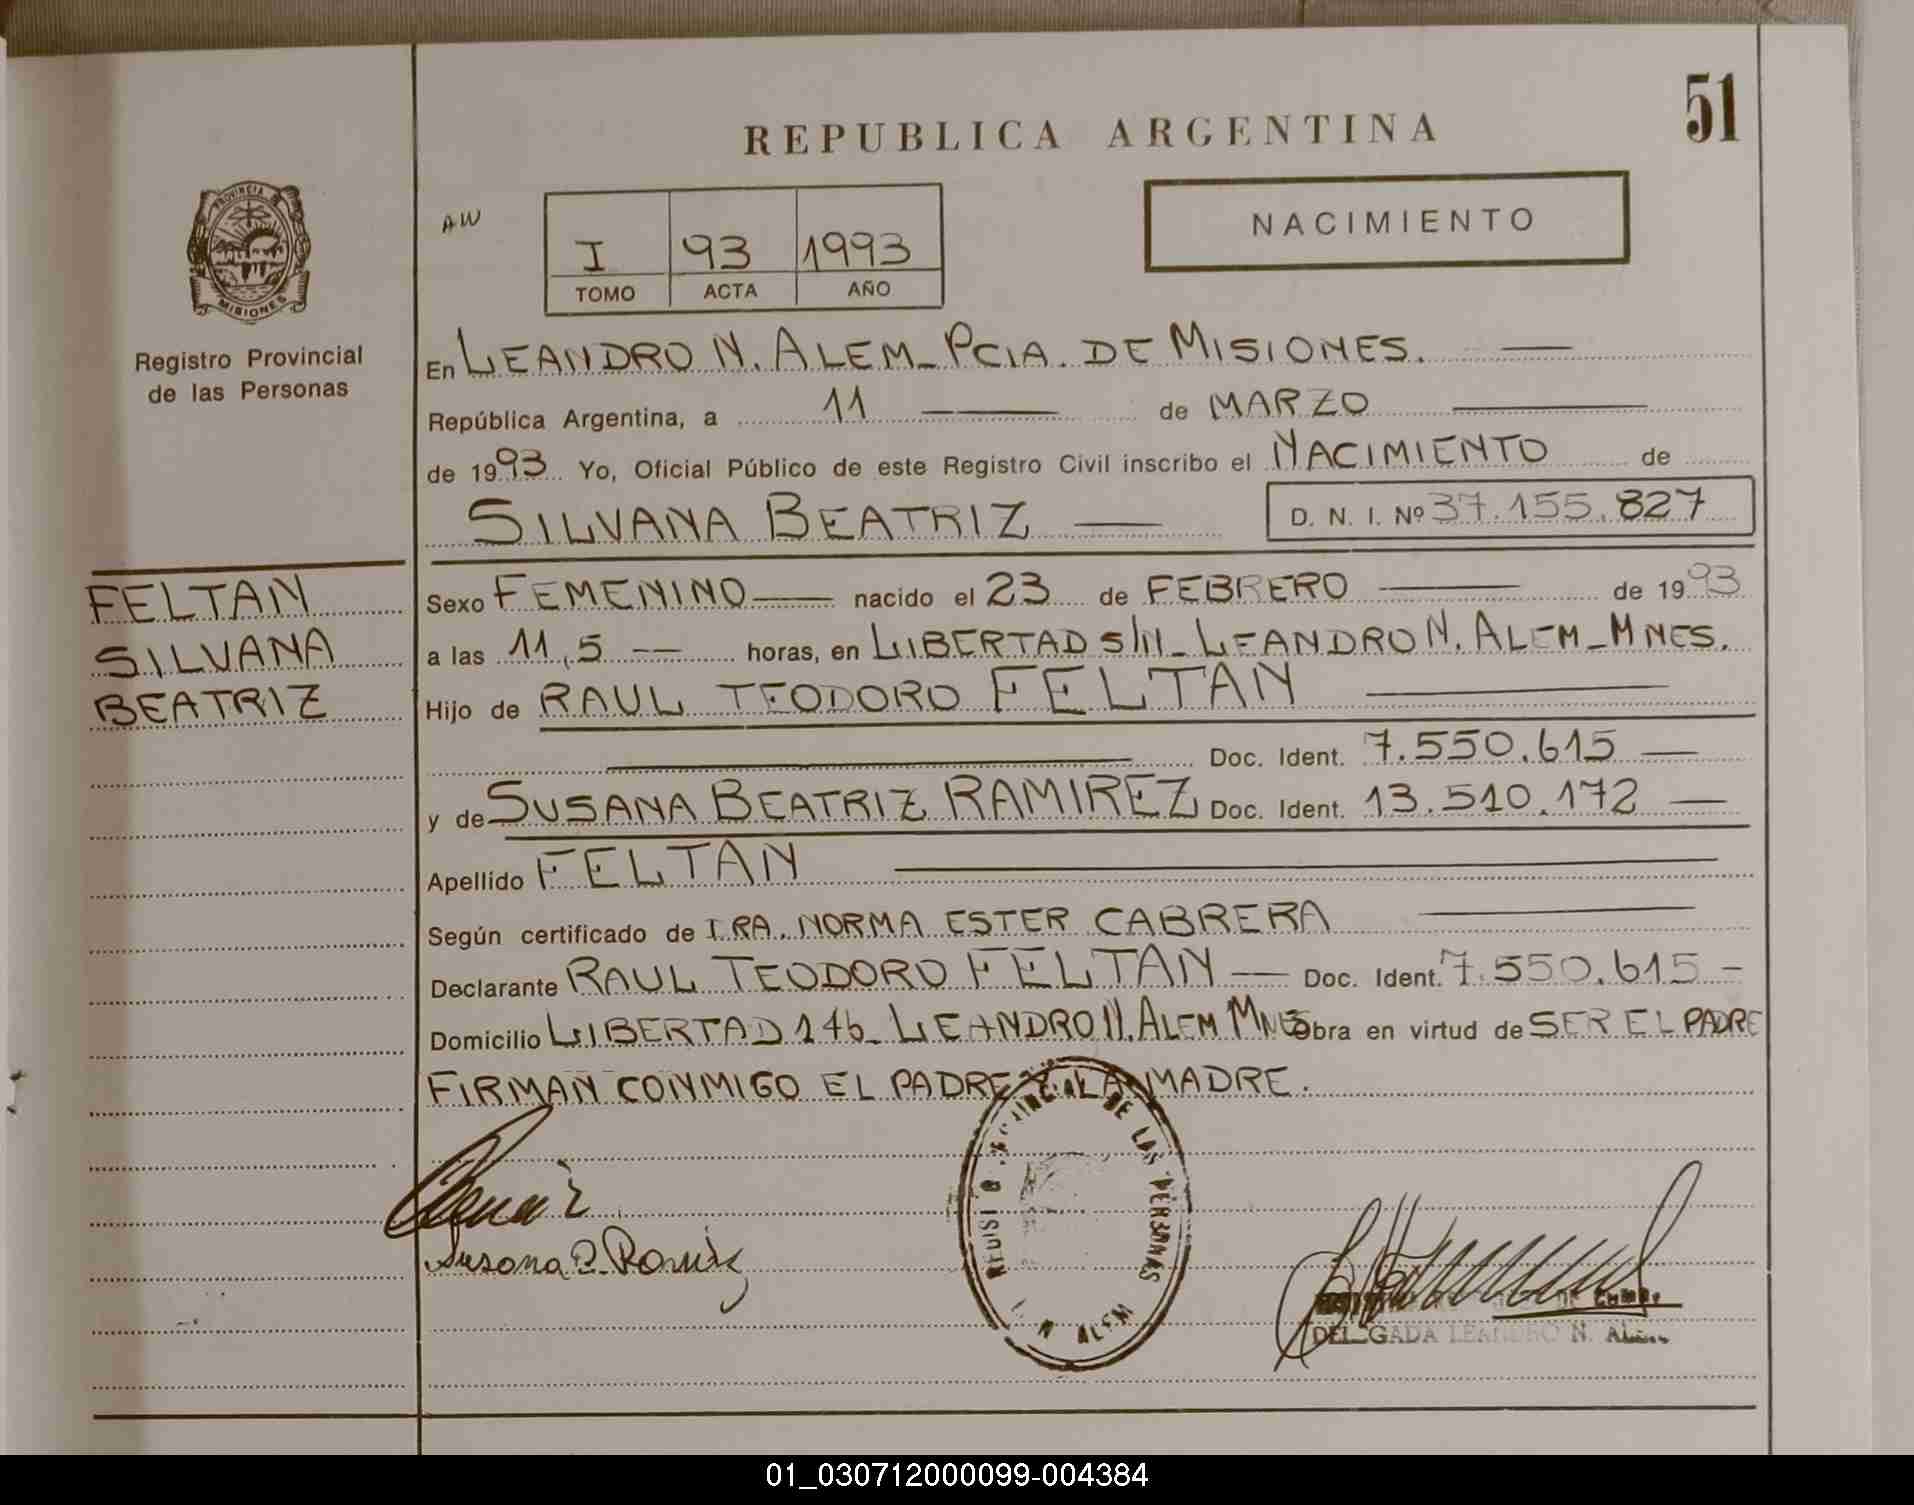 51
REPUBLICA ARGENTINA
PROVINCIA
MISIONES
Registro Provincial
de las Personas
AW
I 93 1993
TOMO ACTA AÑO
NACIMIENTO
En LEANDRO N. ALEM_ PCIA. DE MISIONES.
República Argentina, a 11 de MARZO
de 1993 Yo, Oficial Público de este Registro Civil inscribo el NACIMIENTO de
SILVANA BEATRIZ D. N. I. Nº 37.155.827
FELTAN
SILVANA
BEATRIZ
Sexo FEMENINO nacido el 23 de FEBRERO de 1993
a las 11,5 horas, en LIBERTAD S/N_ LEANDRO N. ALEM_MNES.
Hijo de RAUL TEODORO FELTAN
Doc. Ident. 7.550.615
y de SUSANA BEATRIZ RAMIREZ Doc. Ident. 13.510.172
Apellido FELTAN
Según certificado de NORMA ESTER CABRERA
Declarante RAUL TEODORO FELTAN Doc. Ident. 7.550.615
Domicilio LIBERTAD 146_ LEANDRO N. ALEM MNES Obra en virtud de SER EL PADRE
FIRMAN CONMIGO EL PADRE Y LA MADRE.
DE LAS PERSONAS
N ALEM
Susana
DELEGADA LEANDRO N. ALEM
01_030712000099-004384